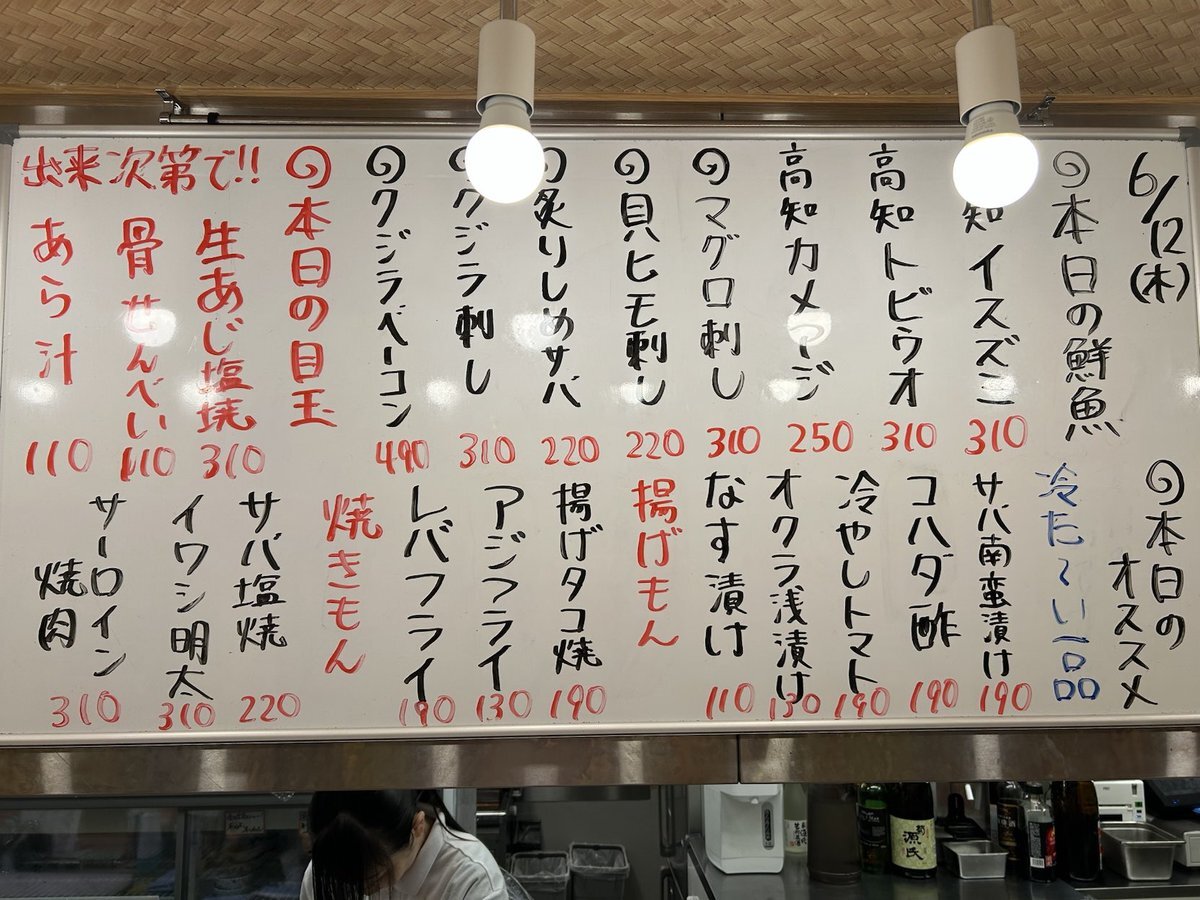 6/12(木)
◎本日の鮮魚
知イスズミ 310
高知トビウオ 310
高知カメージ 250
◎マグロ刺し 310
◎貝ヒモ刺し 220
◎炙りしめサバ 220
◎クジラ刺し 310
◎クジラベーコン 490
◎本日の目玉
出来次第で!!
生あじ塩焼 310
骨せんべい 110
あら汁 110
◎本日の
オススメ
冷た〜い一品
サバ南蛮漬け 190
コハダ酢 190
冷やしトマト 190
オクラ浅漬け 130
なす漬け 110
揚げもん
揚げタコ焼 190
アジフライ 130
レバフライ 190
焼きもん
サバ塩焼 220
イワシ明太 310
サーロイン
焼肉 310
源氏